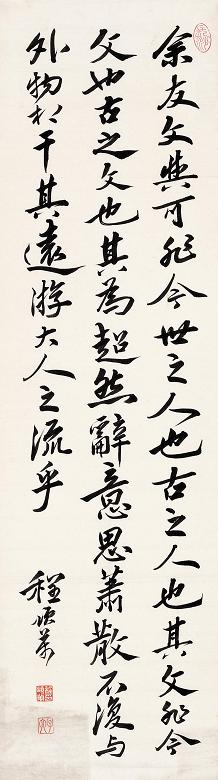 余友文與可非今世之人也古之人也其文非今
文也古之文也其為超然辭意思蕭散不復与
外物相干其遠游大人之流乎
程頌萬